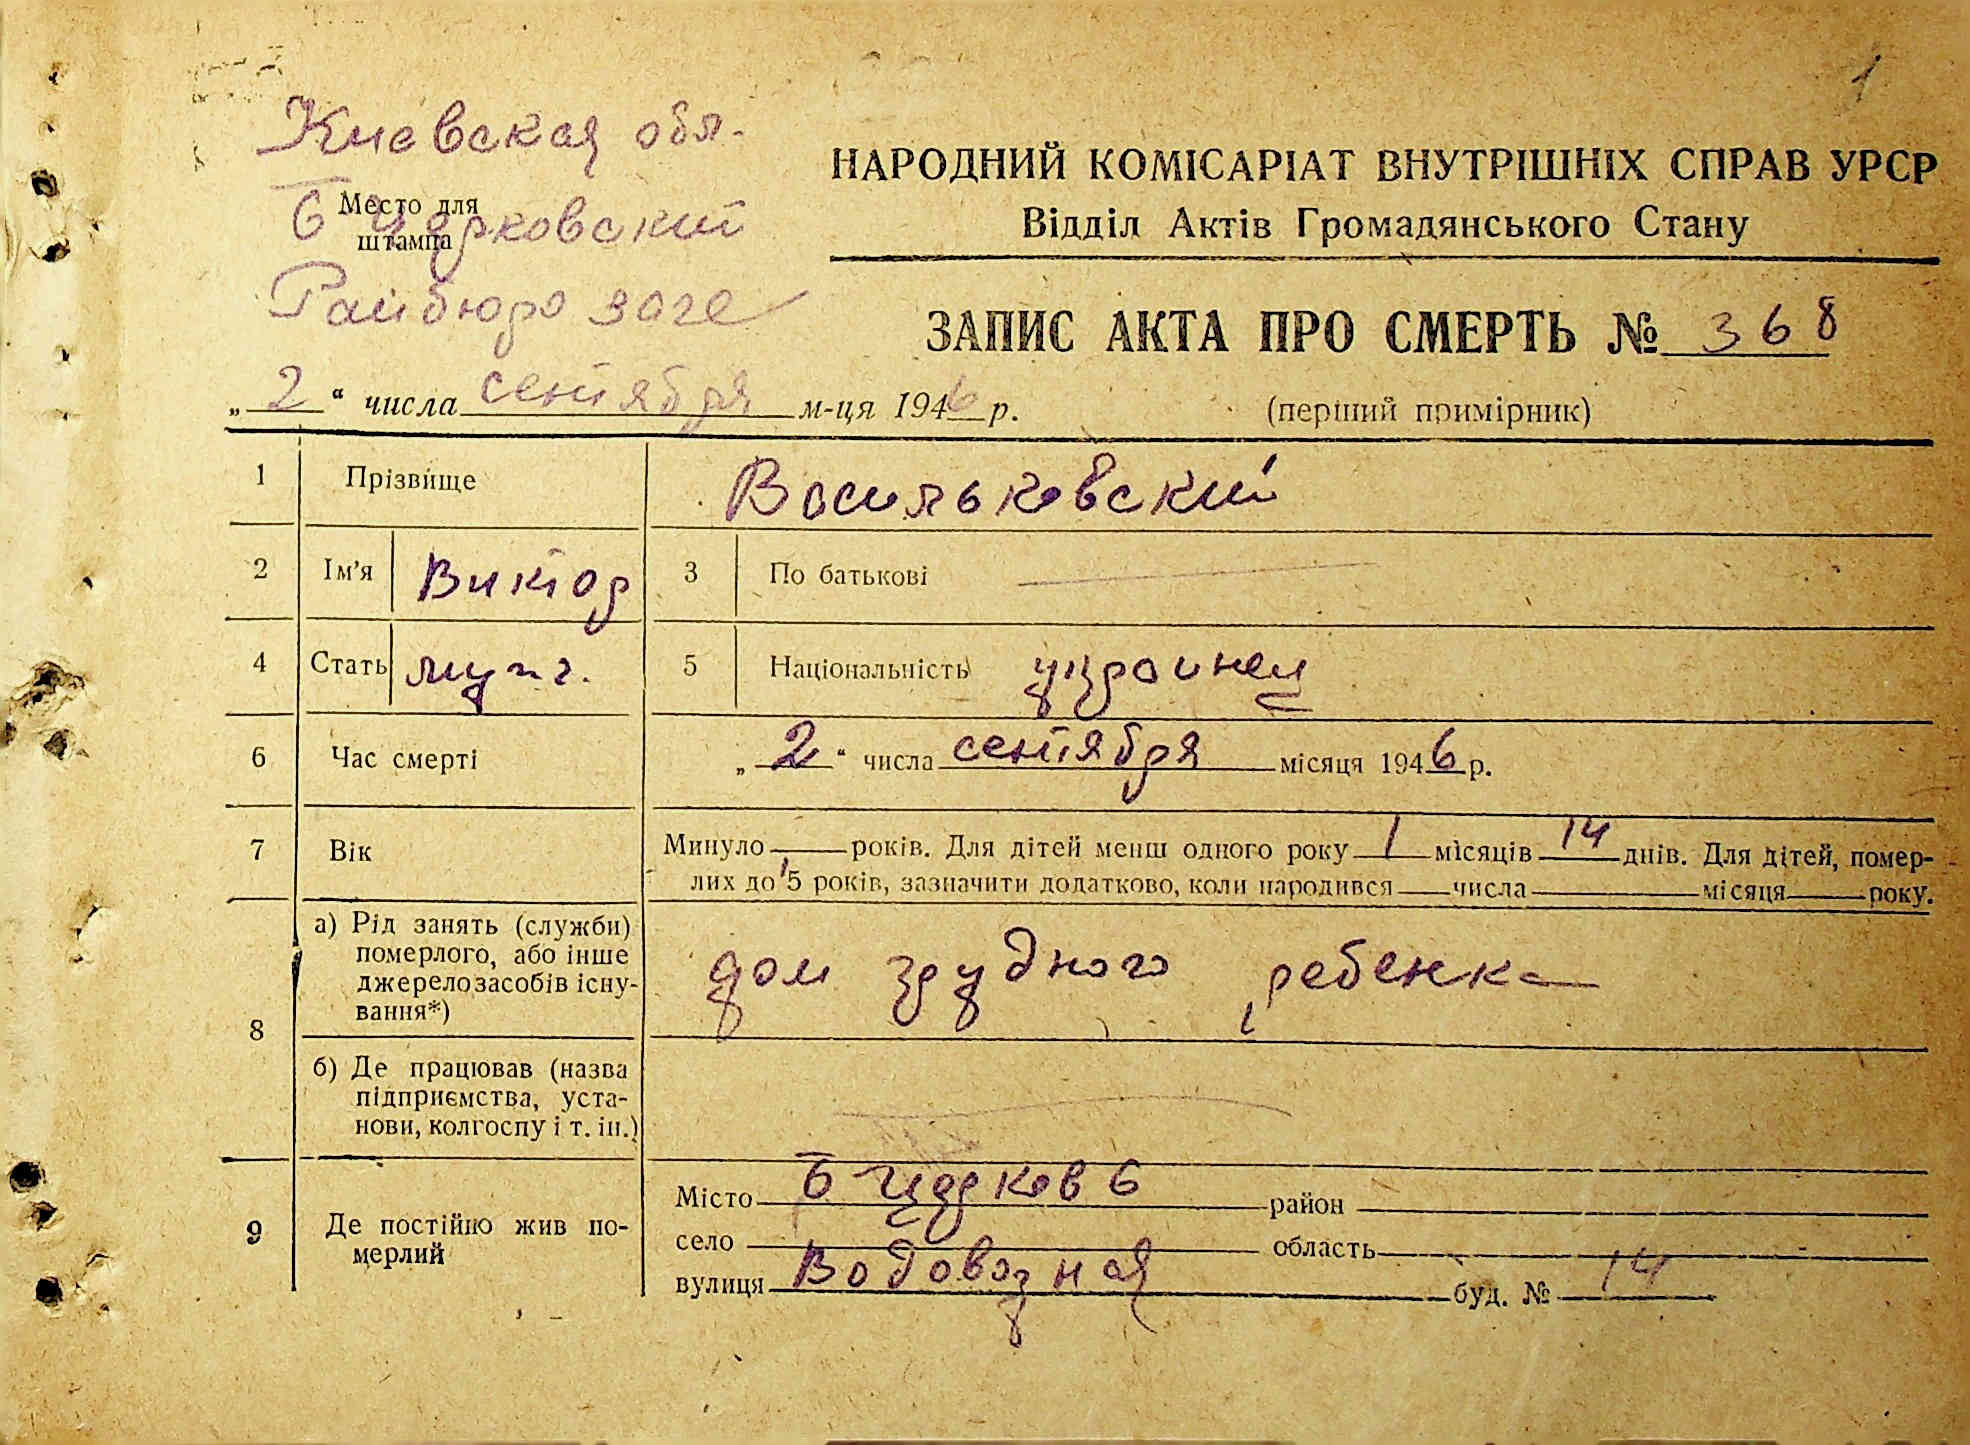 1
Киевская обл.
Место для
штампа
Б Церковский
Райбюро загс
НАРОДНИЙ КОМІСАРІАТ ВНУТРІШНІХ СПРАВ УРСР
Відділ Актів Громадянського Стану
ЗАПИС АКТА ПРО СМЕРТЬ № 368
„2“ числа сентября м-ця 1946 р.
(перший примірник)
1 Прізвище Васильковский
2 Ім'я Виктор 3 По батькові —
4 Стать муж. 5 Національність украинец
6 Час смерті „2“ числа сентября місяця 1946 р.
7 Вік Минуло — років. Для дітей менш одного року 1 місяців 14 днів. Для дітей, помер-
лих до 5 років, зазначити додатково, коли народився — числа — місяця — року.
8 а) Рід занять (служби)
померлого, або інше
джерело засобів існу-
вання*)
дом грудного ребенка
б) Де працював (назва
підприємства, уста-
нови, колгоспу і т. ін.)
9 Де постійно жив по-
мерлий
Місто Б Церковь район
село область
вулиця Водовозная буд. № 14